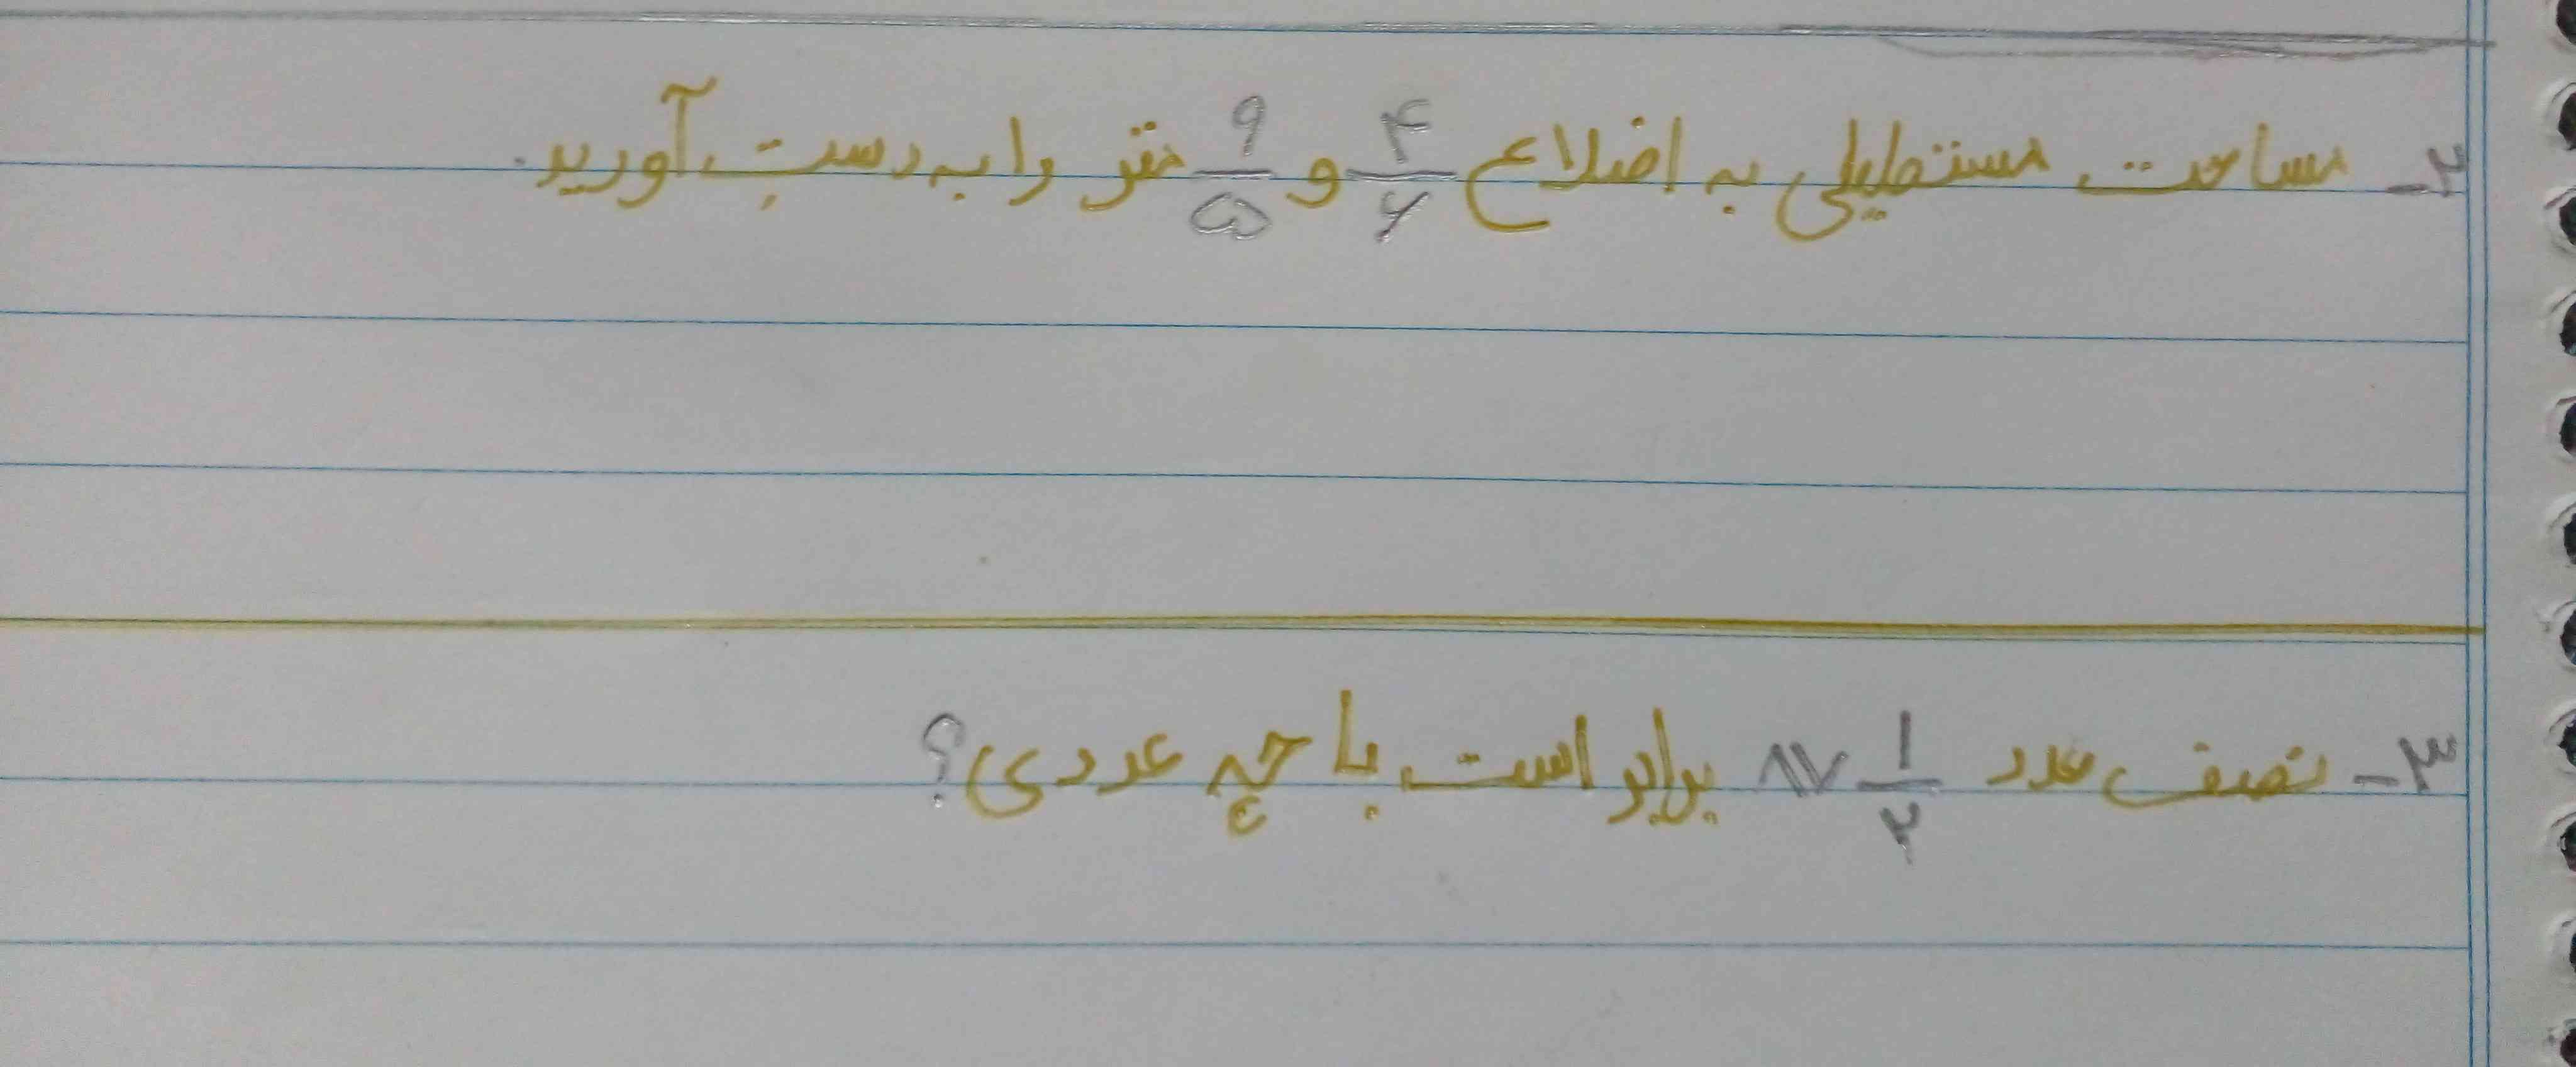 ۲- مساحت مستطیلی به اضلاع ۴/۶ و ۹/۵ متر را به دست آورید.
۳- نصف عدد ۸۷ ۱/۲ برابر است با چه عددی؟